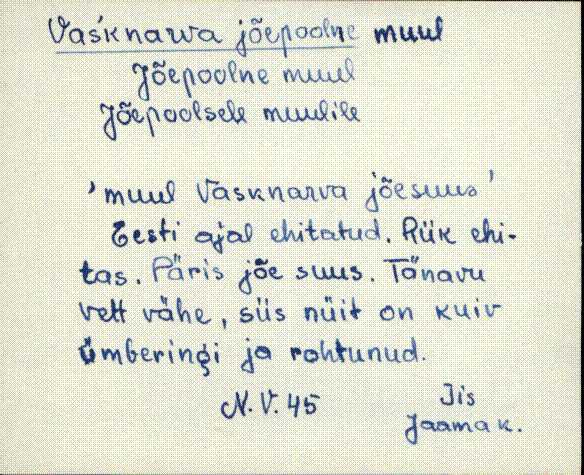 Vas'knarva jõepoolne muul
Jõepoolne muul
Jõepoolsele muulile
'muul Vasknarva jõesuus'
Eesti ajal ehitatud. Riik ehi-
tas. Päris jõe suus. Tänavu
vett vähe, siis nüit on kuiv
ümberingi ja rohtunud.
N. V. 45
Iis
Jaama k.